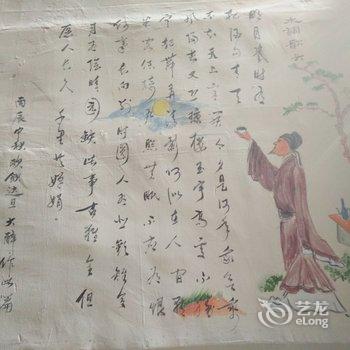 水调歌头
明月幾时有
把酒问青天
不知天上宫阙今夕是何年我欲乘
风归去又恐琼楼玉宇高处不胜
寒起舞弄清影何似在人间转
朱阁低绮户照无眠不应有恨
何事长向别时圆人有悲欢離合
月有阴晴圆缺此事古难全但
愿人长久千里共婵娟
丙辰中秋欢饮达旦大醉作此篇
艺龙
eLong